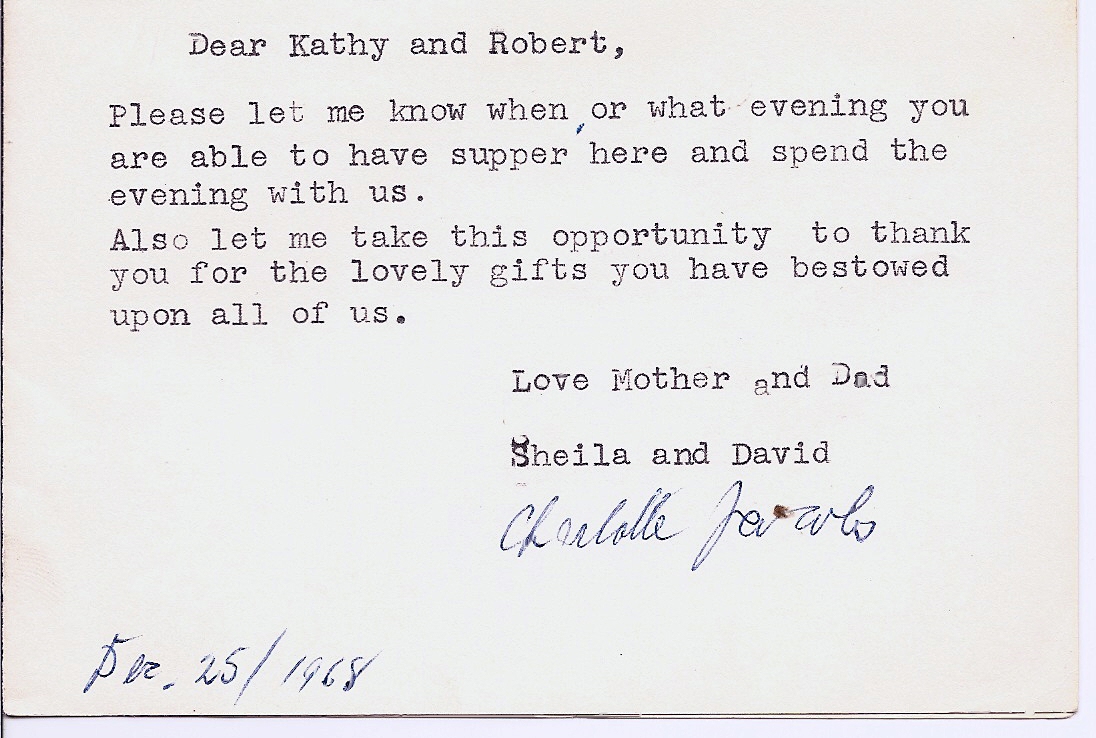 Dear Kathy and Robert,
Please let me know when, or what evening you
are able to have supper here and spend the
evening with us.
Also let me take this opportunity to thank
you for the lovely gifts you have bestowed
upon all of us.
Love Mother and Dad
Sheila and David
Charlotte Jacobs
Dec. 25/1968